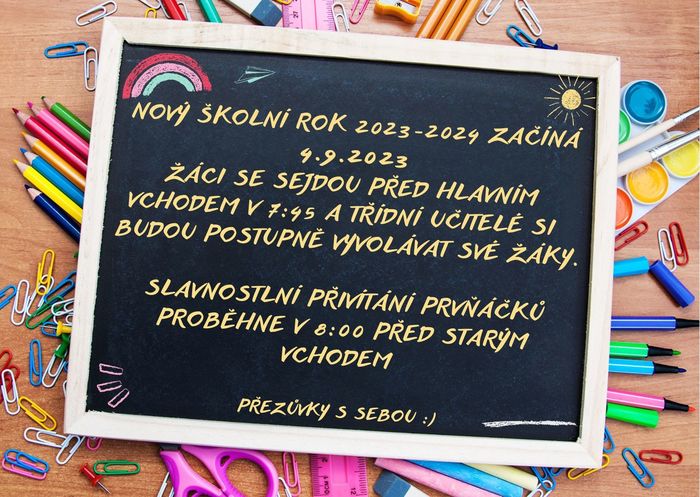 NOVÝ ŠKOLNÍ ROK 2023-2024 ZAČÍNÁ
4.9.2023
ŽÁCI SE SEJDOU PŘED HLAVNÍM
VCHODEM V 7:45 A TŘÍDNÍ UČITELÉ SI
BUDOU POSTUPNĚ VYVOLÁVAT SVÉ ŽÁKY.
SLAVNOSTLNÍ PŘIVÍTÁNÍ PRVŇÁČKŮ
PROBĚHNE V 8:00 PŘED STARÝM
VCHODEM
PŘEZŮVKY S SEBOU :)